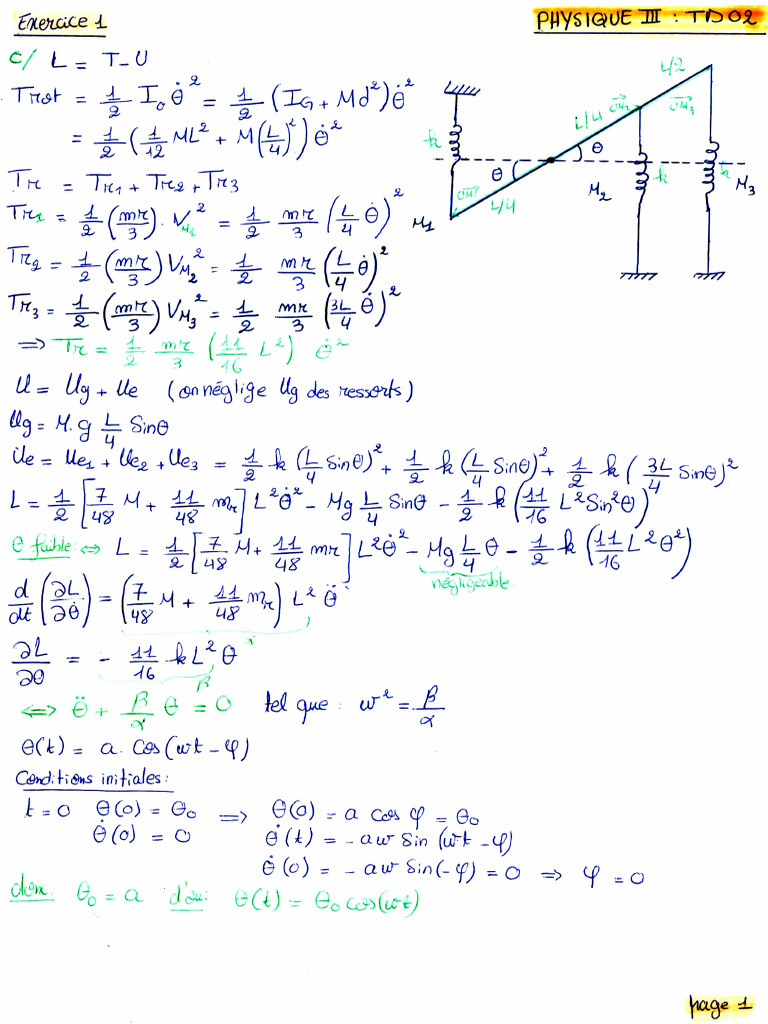 Exercice 1
PHYSIQUE III : TD02
c/ L = T - U
Trot = 1/2 I₀ θ̇² = 1/2 (I_G + Md²) θ̇²
= 1/2 (1/12 ML² + M(L/4)²) θ̇²
Tr = Tr1 + Tr2 + Tr3
Tr1 = 1/2 (mr/3) . V_M1² = 1/2 mr/3 (L/4 θ̇)²
Tr2 = 1/2 (mr/3) V_M2² = 1/2 mr/3 (L/4 θ̇)²
Tr3 = 1/2 (mr/3) V_M3² = 1/2 mr/3 (3L/4 θ̇)²
⟹ Tr = 1/2 mr/3 (11/16 L²) θ̇²
U = Ug + Ue (on néglige Ug des ressorts)
Ug = M.g L/4 Sinθ
Ue = Ue1 + Ue2 + Ue3 = 1/2 k (L/4 Sinθ)² + 1/2 k (L/4 Sinθ)² + 1/2 k (3L/4 Sinθ)²
L = 1/2 [7/48 M + 11/48 mr] L²θ̇² - Mg L/4 Sinθ - 1/2 k (11/16 L²Sin²θ)
θ faible: ⇔ L = 1/2 [7/48 M + 11/48 mr] L²θ̇² - Mg L/4 θ - 1/2 k (11/16 L²θ²)
négligeable
d/dt (∂L/∂θ̇) = (7/48 M + 11/48 mr) L² θ̈
α
∂L/∂θ = - 11/16 kL² θ
β
⟺ θ̈ + β/α θ = 0 tel que : w² = β/α
θ(t) = a. cos(wt - φ)
Conditions initiales:
t = 0 θ(0) = θ₀ ⟹ θ(0) = a cos φ = θ₀
θ̇(0) = 0 θ̇(t) = - aw sin (wt - φ)
θ̇(0) = - aw sin(-φ) = 0 ⟹ φ = 0
donc: θ₀ = a d'où: θ(t) = θ₀ cos(wt)
L/2
OM₃
L/4
OM₂
k
θ
θ
k
k
M₁
OM₁
L/4
M₂
M₃
page 1